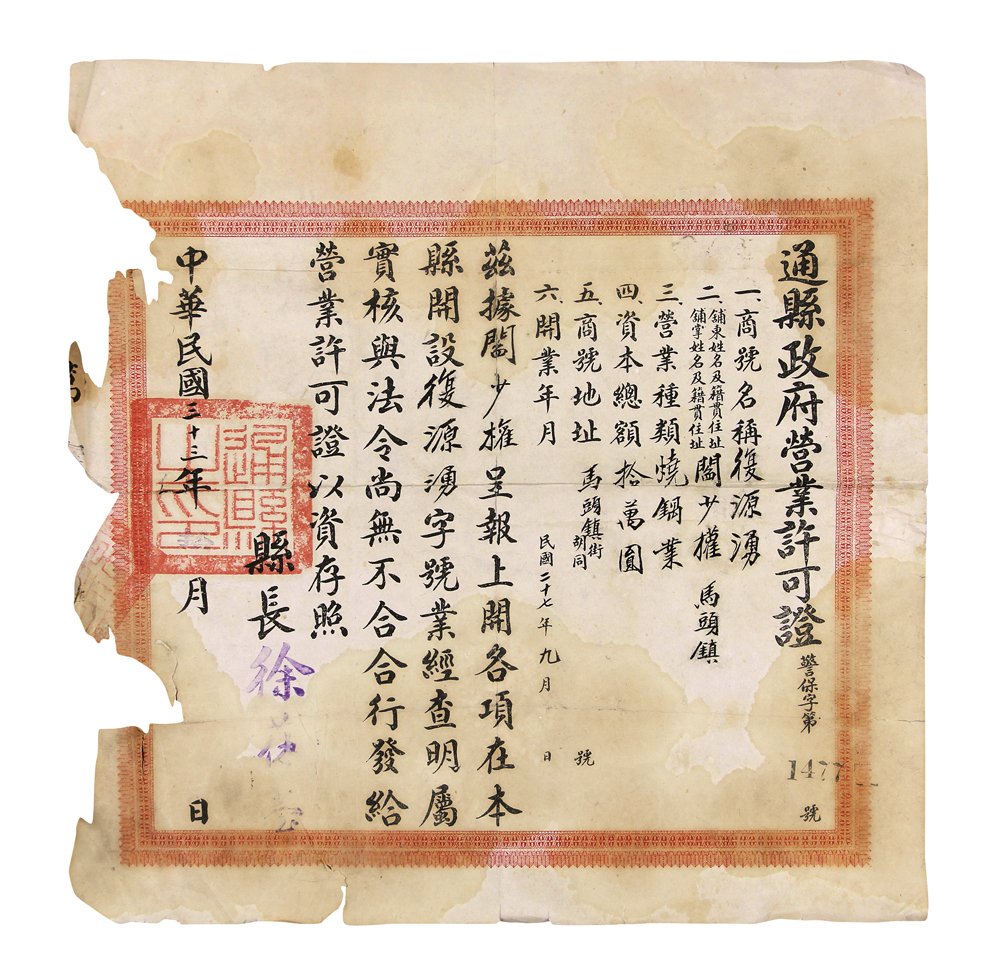 通縣政府營業許可證 警保字第1477號
一、商號名稱 復源湧
二、舖東姓名及籍貫住址
舖掌姓名及籍貫住址 閻少權 馬頭鎮
三、營業種類 燒鍋業
四、資本總額 拾萬圓
五、商號地址 馬頭鎮街胡同 號
六、開業年月 民國二十七年九月 日
茲據閻少權呈報上開各項在本
縣開設復源湧字號業經查明屬
實核與法令尚無不合合行發給
營業許可證以資存照
縣長徐
中華民國三十三年 月 日